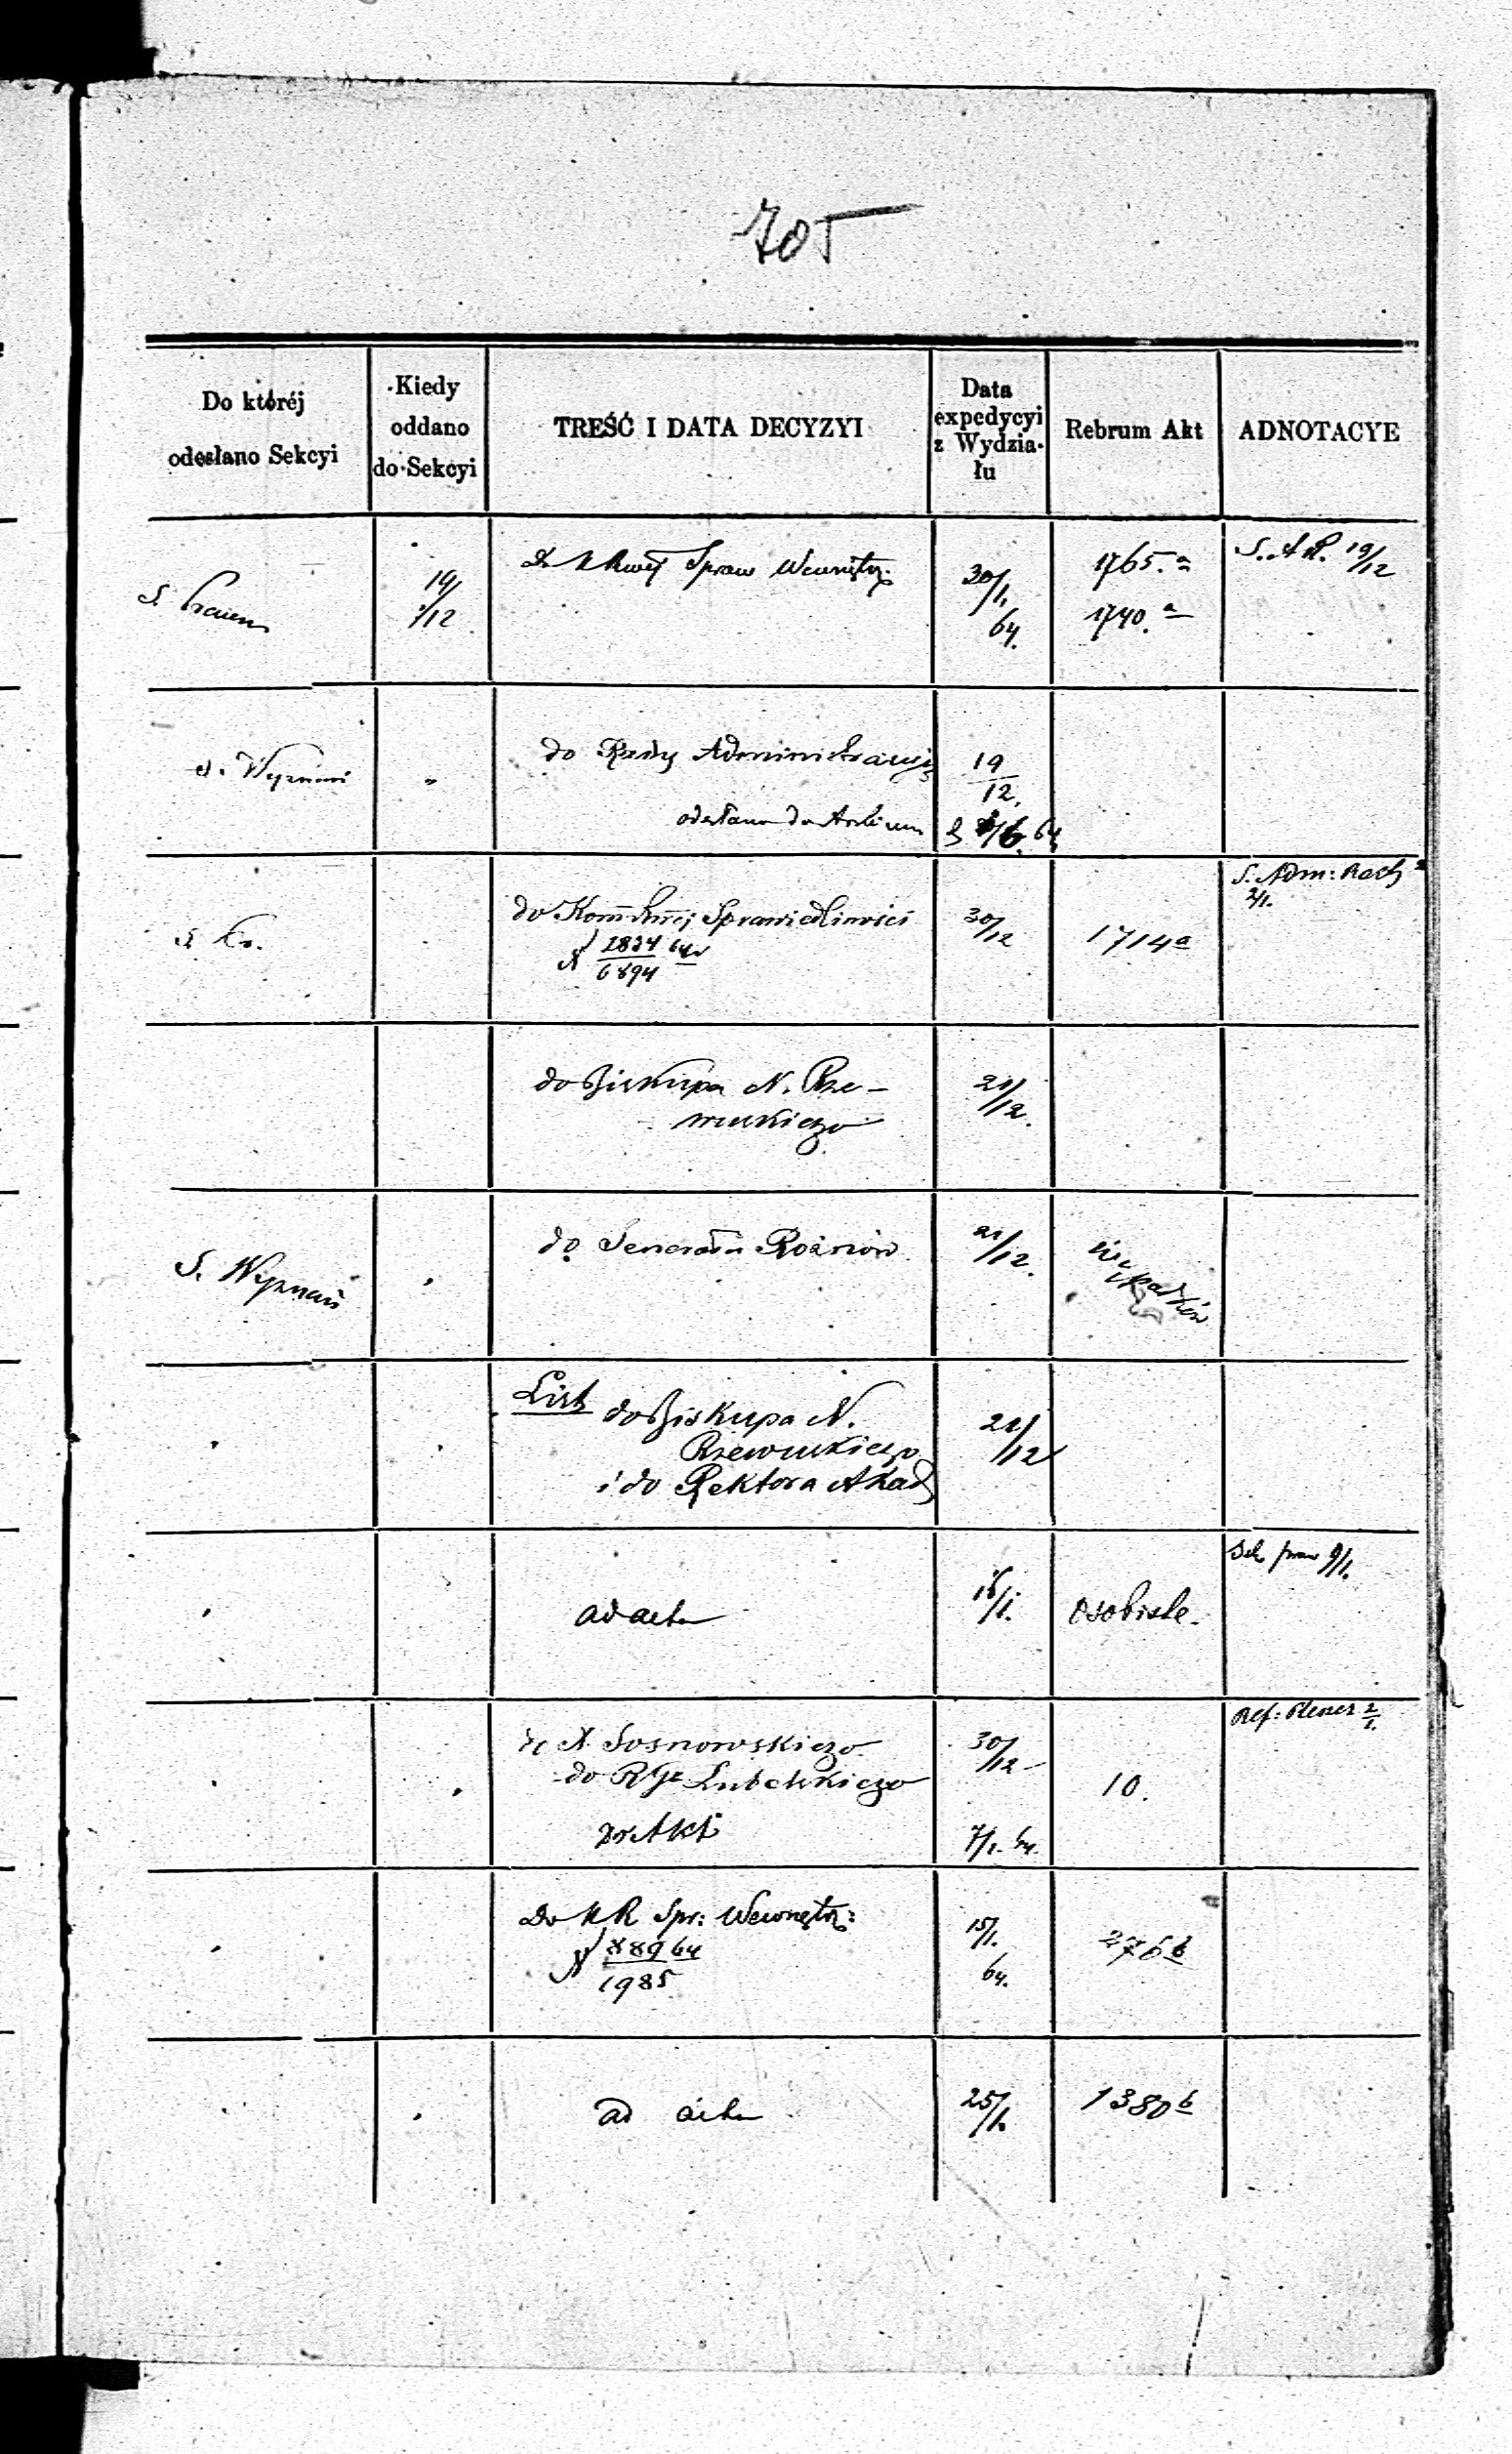 705
Do któréj
odesłano Sekcyi
Kiedy
oddano
do Sekcyi
TREŚĆ I DATA DECYZYI
Data
expedycyi
z Wydzia-
łu
Rebrum Akt
ADNOTACYE
S.
19/12
Do K Rwej Spraw Wewnętrz:
30/1
64.
1765. a
1740. a
S. A R. 19/12
S. Wyznań
"
do Rady Administracyj
19/12.
odesłano do
64
S.
do Kom Rwej Sprawiedliwości
N 2834/6894 64
30/12
1714 a
S. Adm: Rach
2/1.
do Biskupa N. Rze-
wuskiego
21/12.
S. Wyznań
do Generała Rożnów
21/12.
List do Biskupa N.
Rzewuskiego
i do Rektora Akad
21/12
ad acta
16/1.
osobiste.
Sek praw 9/1.
X. Sosnowskiego
do Lubelskiego
30/12
10.
Ref: 2/1.
do Akt
7/1. 64.
Do K R Spr: Wewnętrz:
N 889/1985 64
15/1.
64.
276 b
ad acta
25/1.
1380 b